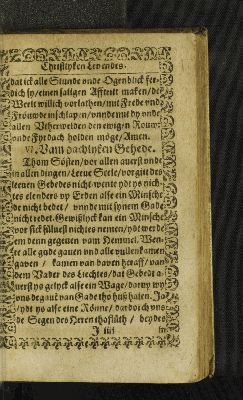 Christlyken Levendes.
dat ick alle Stunde unde Ogenblick fer-
dich sy/ einen saligen Afftritt maken/ de
Werlt willich vorlathen/ mit Frede unde
Fröuwde inschlapen/ unnde mit dy unde
allen Utherwelden den ewigen Rouw
unde Fyrdach holden möge/ Amen.
VI. Vam dachlyken Gebede.
Thom Sösten/ vor allen averst unde
in allen dingen/ Leeve Seele/ vorgitt des
leeven Gebedes nicht wente ydt ys nich-
tes elenders up Erden alse ein Minsche
de nicht bedet/ unnde mit synem Gade
nicht redet. Gewißlyck kan ein Minsche
vor sick sülvest nichtes nemen/ ydt werde
em denn gegeven vam Hemmel. Wen-
te alle gude gaven und alle vullenkamen
gaven/ kamen van baven heraff/ van
dem Vader des Liechtes/ dat Gebedt a-
verst ys gelyck alse ein Wage/ darup wy
uns de gaven van Gade tho huß halen. Ja
ydt ys alse eine Rönne/ dardorch uns
de Segen des Heren thoflüth/ beydes
J iiii
in